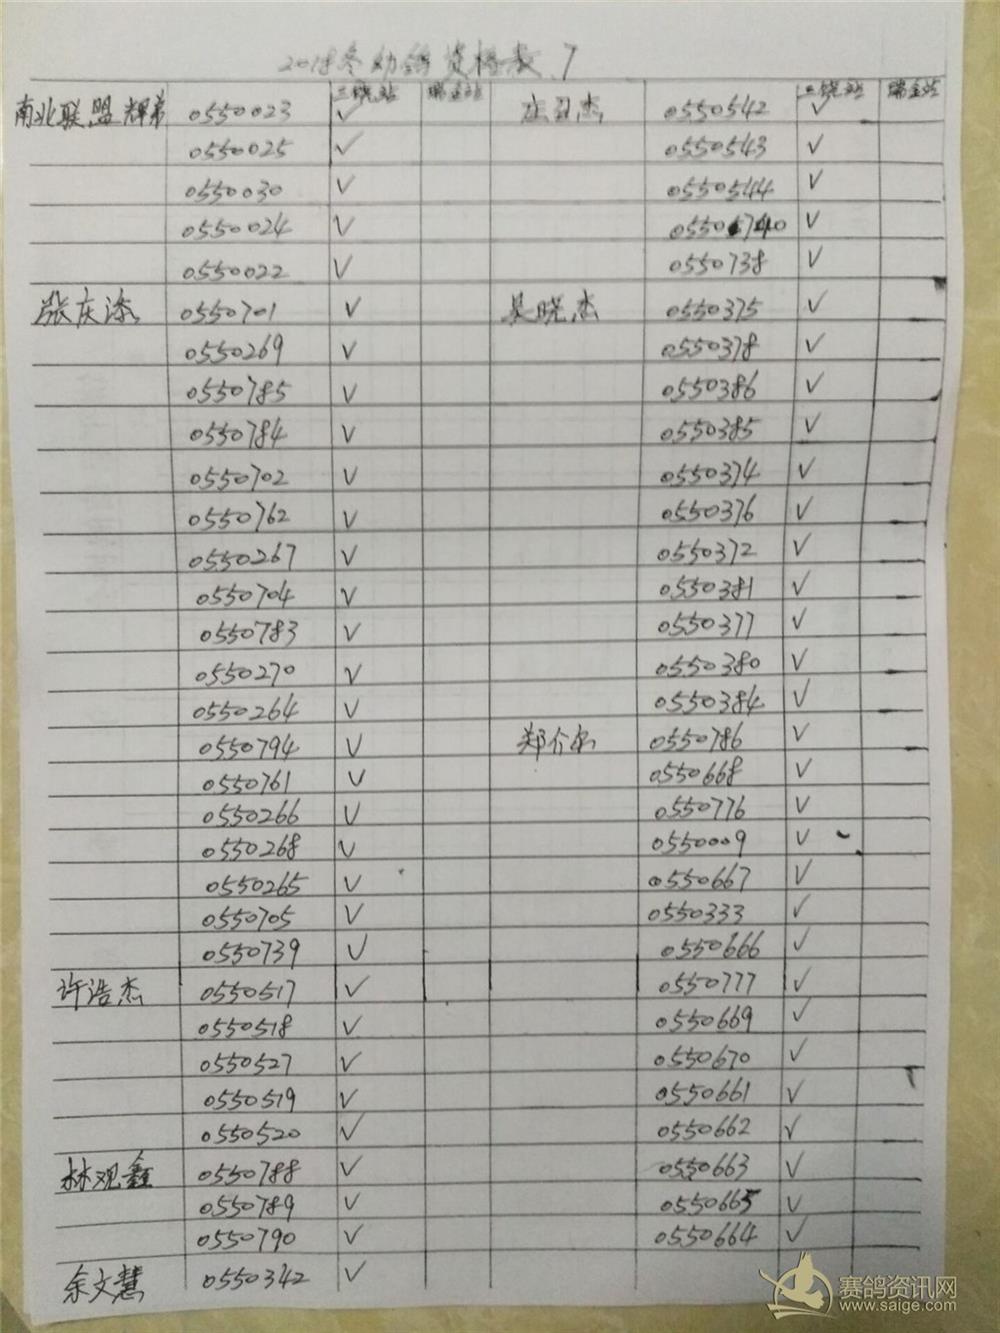 2018冬幼鸽资格表、7
三饶站 瑞金站 三饶站 瑞金站
南北联盟 辉弟 0550023 ✓ 庄丑杰 0550542 ✓
0550025 ✓ 0550543 ✓
0550030 ✓ 0550544 ✓
0550024 ✓ 0550740 ✓
0550022 ✓ 0550738 ✓
张庆添 0550701 ✓ 吴晓杰 0550375 ✓
0550269 ✓ 0550378 ✓
0550785 ✓ 0550386 ✓
0550784 ✓ 0550385 ✓
0550702 ✓ 0550374 ✓
0550762 ✓ 0550376 ✓
0550267 ✓ 0550372 ✓
0550704 ✓ 0550381 ✓
0550783 ✓ 0550377 ✓
0550270 ✓ 0550380 ✓
0550264 ✓ 0550384 ✓
0550794 ✓ 郑介 0550786 ✓
0550761 ✓ 0550668 ✓
0550266 ✓ 0550776 ✓
0550268 ✓ 0550009 ✓
0550265 ✓ 0550667 ✓
0550705 ✓ 0550333 ✓
0550739 ✓ 0550666 ✓
许浩杰 0550517 ✓ 0550777 ✓
0550518 ✓ 0550669 ✓
0550527 ✓ 0550670 ✓
0550519 ✓ 0550661 ✓
0550520 ✓ 0550662 ✓
林观鑫 0550788 ✓ 0550663 ✓
0550789 ✓ 0550665 ✓
0550790 ✓ 0550664 ✓
余文慧 0550342 ✓
赛鸽资讯网
www.saige.com